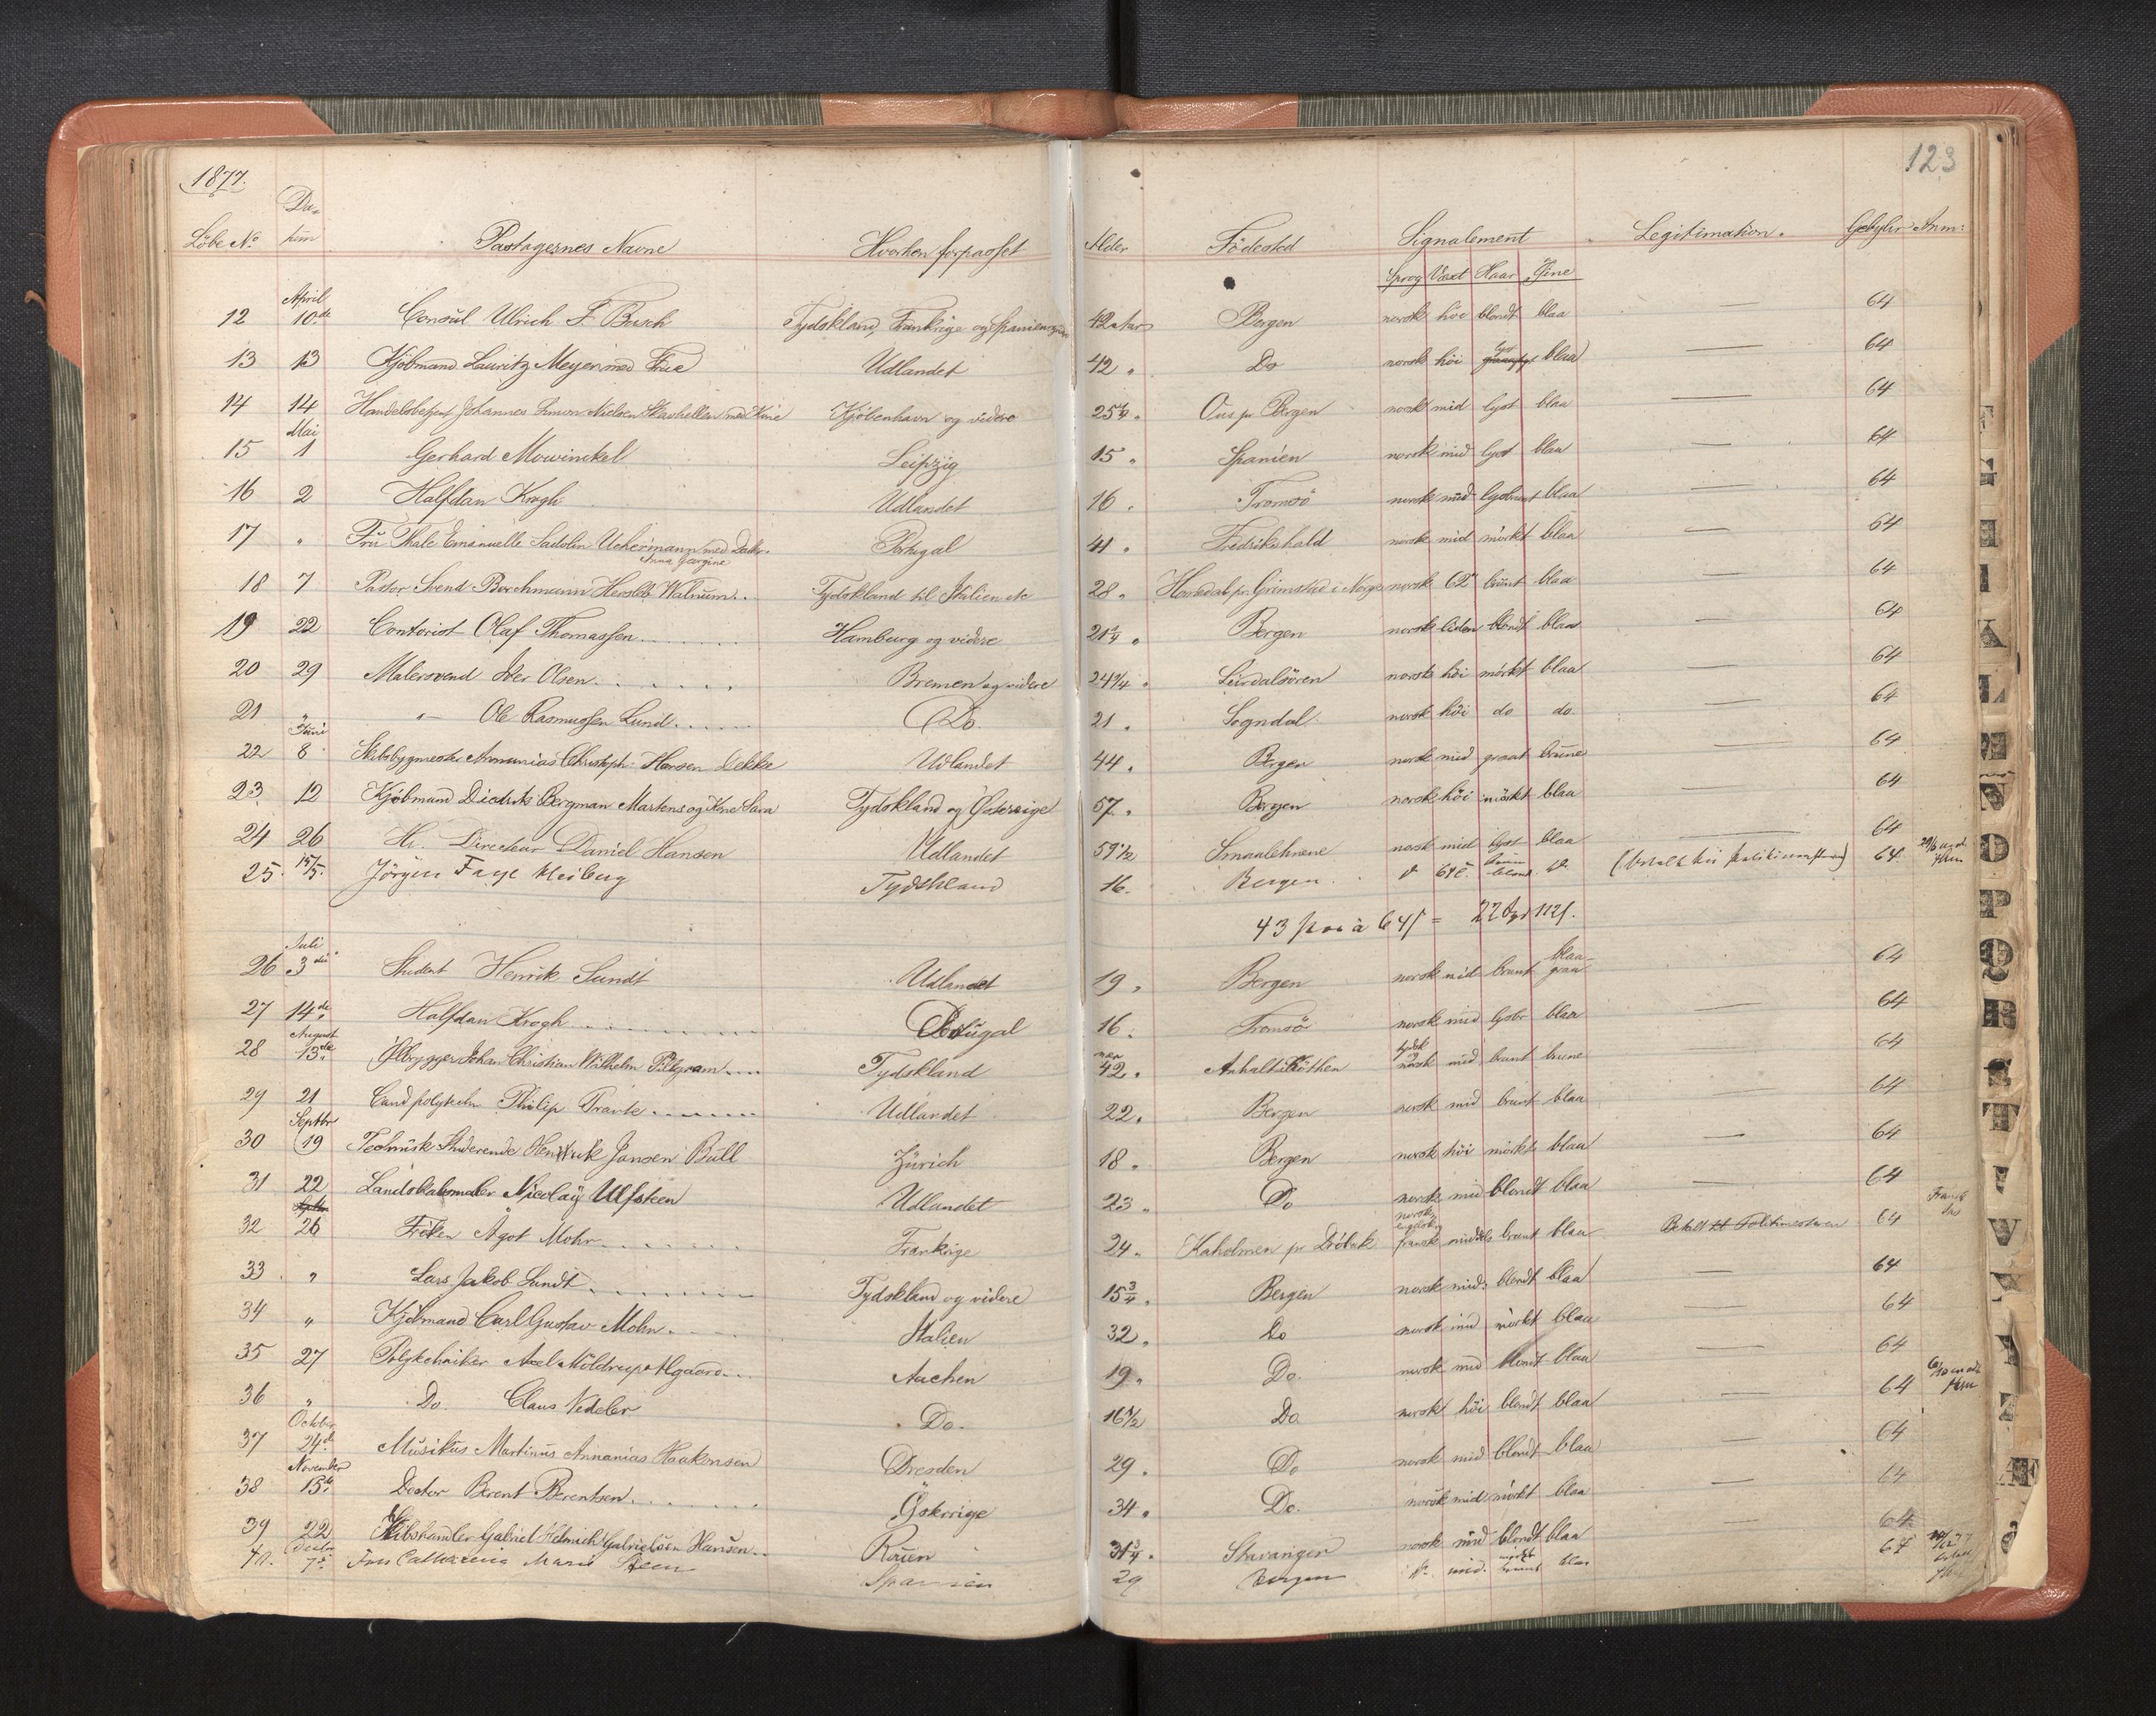 1877.
123
Löbe No Datum Passagernes Navne Hvorhen forpasset Alder Födested Signalement Legitimation. Gebyhr Anm:
Sprog Væxt Haar Öine
April
12 10de Consul Ulrich F. Busch Tydskland, Frankrige og Spanien 42 Aar Bergen norsk höi blondt blaa — 64
13 13 Kjöbmand Lauritz Meyer med Frue Udlandet 42 " Do norsk höi lyst blaa — 64
14 14 Johannes Simon Nielsen med Kone Kjöbenhavn og videre 25 1/4 " Ous pr Bergen norsk mid lyst blaa — 64
Mai
15 1 Gerhard Mowinckel Leipzig 15 " Spanien norsk mid lyst blaa — 64
16 2 Halfdan Krogh Udlandet 16 " Tromsö norsk mid lysbrunt blaa — 64
17 " Fru Thale Emanuelle Sadolin Uchermann med Datter Portugal 41 " Fredrikshald norsk mid mörkt blaa — 64
Anna Georgine
18 7 Pastor Svend Borchmann Hersleb Walnum.. Tydskland til Italien etc 28 " pr. Grimstad i Norge norsk 62" brunt blaa — 64
19 22 Contorist Olaf Thomassen Hamburg og videre 21 1/4 " Bergen norsk liden blondt blaa — 64
20 29 Malersvend Iver Olsen Bremen og videre 24 3/4 " Leirdalsören norsk höi mörkt blaa — 64
21 " " Ole Rasmussen Lund Do. 21 " Sogndal norsk höi do do. — 64
Juni
22 8 Skibsbygmester Annanias Christoph: Hansen Dekke Udlandet 44 " Bergen norsk mid graat brune — 64
23 12 Kjöbmand Diedrik Bergman Martens og Kone Sara Tydskland og Østerrige 57 " Bergen norsk höi mörkt blaa — 64
24 26 Hr. Directeur Daniel Hansen Udlandet 59 1/2 Smaalehnene norsk mid lyst blaa — 64
25. 15/5. Jörgen Faye Meiberg Tydskland 16. Bergen (betalt hos Politimesteren) 64.
43 à 64 = 22
Juli
26 3die Student Henrik Sundt Udlandet 19 " Bergen norsk mid brunt blaa-graa 64
27 14de Halfdan Krogh Portugal 16 " Tromsö norsk mid lysbr blaa — 64
August
28 13de Ølbrygger Johan Christian Wilhelm Piltgram Tydskland 42 " Anhalt Köthen tydsk og norsk mid brunt brune 64
29 21 Cand polytechn Philip Travte Udlandet 22 " Bergen norsk mid brunt blaa — 64
Septbr
30 19 Technisk Studerende Henrik Jansen Bull Zürich 18 " Bergen norsk höi mörkt blaa — 64
31 22 Landskabsmaler Nicolaÿ Ulfsten Udlandet 23 " Do norsk mid blondt blaa — 64
32 26 Fröken Ågot Mohr Frankrige 24 " Kaholmen pr Dröbak norsk engelsk fransk middels brunt blaa Betalt til Politimesteren 64
33 " Lars Jakob Sundt Tydskland og videre 15 3/4 " Bergen norsk mid: blondt blaa — 64
34 " Kjöbmand Carl Gustav Mohn Italien 32 " Do norsk mid mörkt blaa — 64
35 27 Polytekniker Axel Möldrup Algaard Aachen 19 " Do. norsk mid blondt blaa — 64
36 " Do. Claus Nedeler Do. 16 1/2 Do norsk höi blondt blaa — 64
Octobr
37 24de Musikus Martinus Annanias Haakonsen Dresden 29 " Do norsk mid blondt blaa — 64
November
38 15de Doctor Berent Berentsen Österrige 34 " Do. norsk mid mörkt blaa — 64
39 22 Skibshandler Gabriel Helmich Gabrielsen Hansen Rouen 31 3/4 " Stavanger norsk mid blondt blaa — 64
Decbr
40. 7de Catharina Marie Steen Spanien 29 Bergen mid. mörkt brunt blaa 64
K
L
M
N
O
P
Q
R
S
T
V